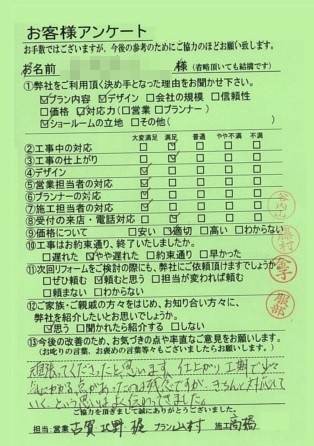 お客様アンケート
お手数ではございますが、今後の参考のためにご協力のほどお願い致します。
お名前 様 (省略頂いても結構です)
①弊社をご利用頂く決め手となった理由をお聞かせ下さい。
☑プラン内容 ☑デザイン □会社の規模 □信頼性
□価格 ☑対応力(□営業 □プランナー)
☑ショールームの立地 □その他(
大変満足 満足 普通 やや不満 不満
②工事中の対応 □ ☑ □ □ □
③工事の仕上がり □ ☑ □ □ □
④デザイン ☑ □ □ □ □
⑤営業担当者の対応 ☑ □ □ □ □
⑥プランナーの対応 ☑ □ □ □ □
⑦施工担当者の対応 ☑ □ □ □ □
⑧受付の来店・電話対応 □ ☑ □ □ □
⑨価格について □安い ☑適切 □高い □わからない
⑩工事はお約束通り、終了いたしましたか。
□遅れた ☑やや遅れた □約束通り □早かった
⑪次回リフォームをご検討の際にも、弊社にご依頼頂けますでしょうか。
□ぜひ頼む ☑頼むと思う □担当が変われば頼む
□頼まない □わからない
⑫ご家族・ご親戚の方々をはじめ、お知り合い方々に、
弊社を紹介したいとお思いでしょうか。
☑思う □聞かれたら紹介する □しない
⑬今後の改善のため、お気づきの点や率直なご意見をお願いします。
(お叱りの言葉、お褒めの言葉等々もございましたらお願いします。)
頑張ってくださったと思います。仕上がり、工期で少々
気にかかる点があったのは残念ですが、きちんと対応して
いくという思いはよく伝わってきました。
ご協力を頂きまして誠にありがとうございました。
担当:営業 古賀 北野 堀 プラン 山村 施工 高橋
金子
服部